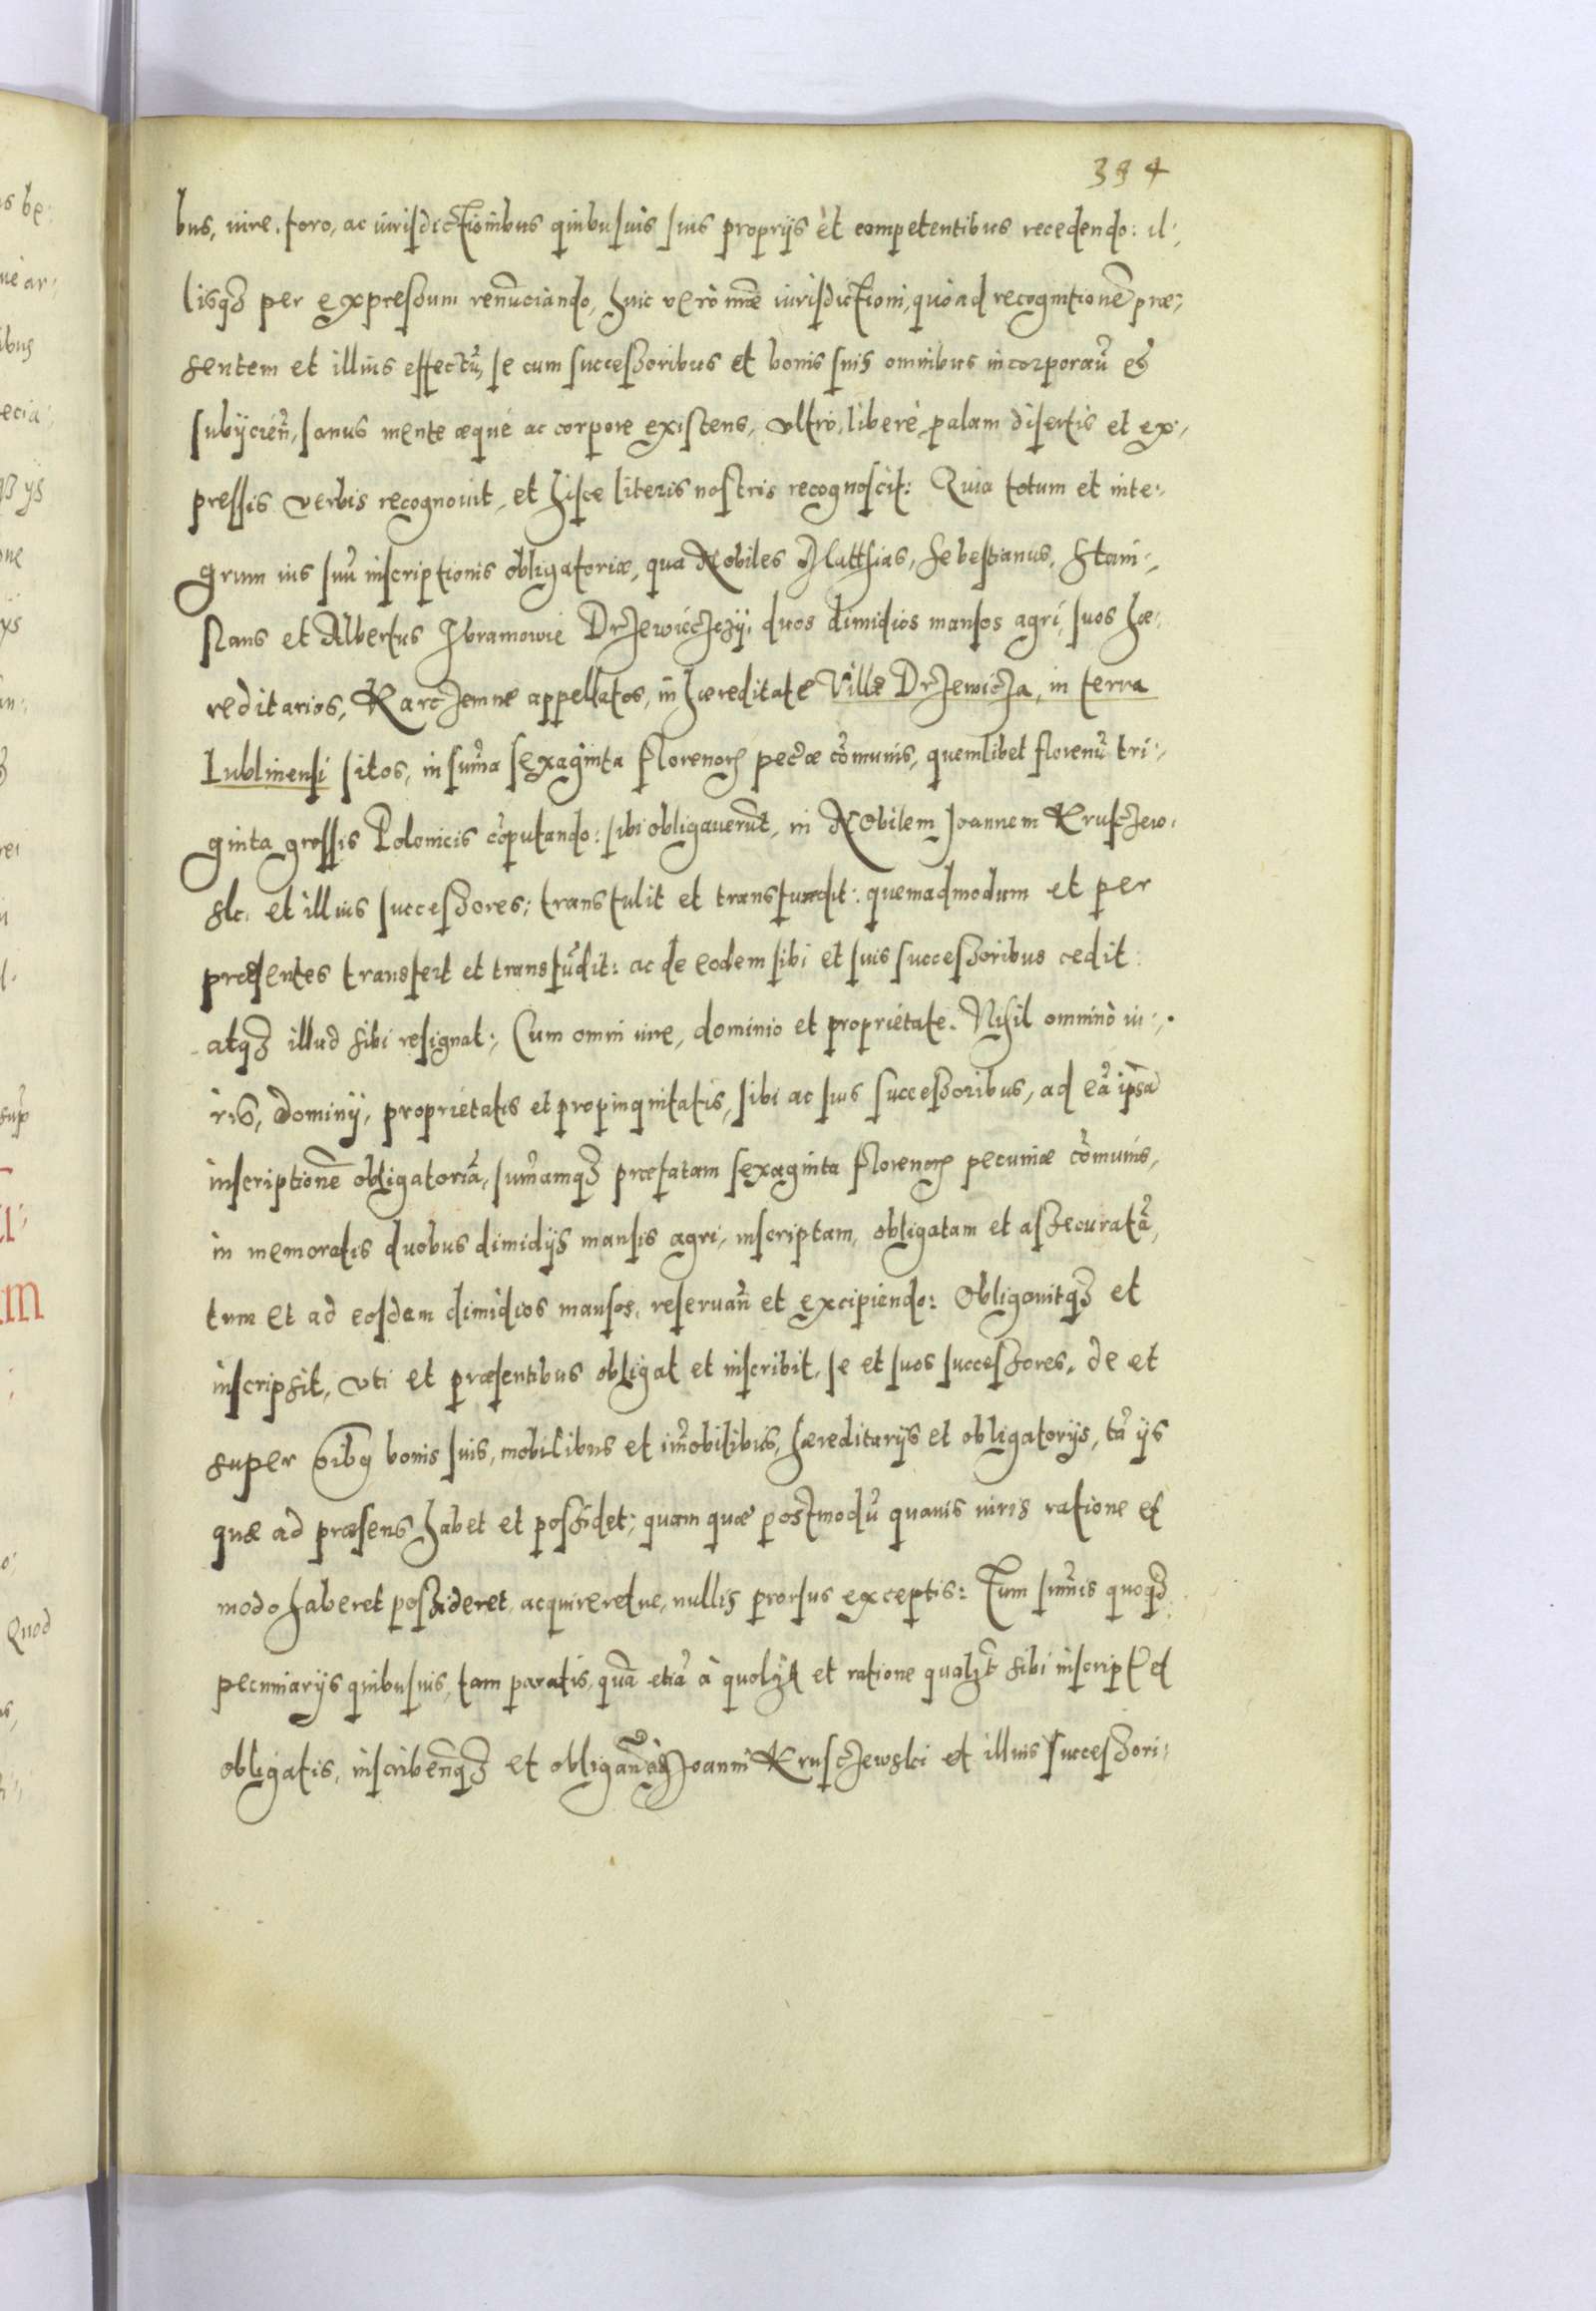 394
bus, iure, foro, ac iurisdictionibus quibusuis suis proprijs et competentibus recedendo: il-
lisq3 per expressum renūciando, huic verò nr̃æ iurisdictioni, quoad recognitionē præ-
sentem et illius effectū, se cum successoribus et bonis suis omnibus incorporañ et
subijcień, sanus mente æquè ac corpore existens, vltrò, liberè, palam disertis et ex-
pressis verbis recognouit, et hisce literis nostris recognoscit: Quia totum et inte-
grum ius suū inscriptionis obligatoriæ, qua Nobiles Matthias, Sebestianus, Stani-
slaus et Albertus Ibramowie Drzewiecczy, duos dimidios mansos agri, suos hæ-
reditarios, Karczemne appellatos, in hæreditate Villæ Drzewicza, in terra
Lublinensi sitos, in sum̃a sexaginta florenorꝫ pec̃æ cõmunis, quemlibet florenū tri-
ginta grossis Polonicis cõputando: sibi obligauerūt, in Nobilem Joannem Krusczew-
ski et illius successores; transtulit et transfundit: quemadmodum et per
præsentes transfert et transfūdit: ac de eodem sibi et suis successoribus cedit
atq3 illud sibi resignat; Cum omni iure, dominio et proprietate. Nihil omninò iu-
ris, dominij, proprietatis et propinquitatis, sibi ac suis successoribus, ad eã ipsã
inscriptionē obligatoriã, sum̃amq3 præfatam sexaginta florenorꝫ pecuniæ cõmunis,
in memoratis duobus dimidijs mansis agri, inscriptam, obligatam et assecuratã,
tum et ad eosdem dimidios mansos, reseruañ et excipiendo: Obligauitq3 et
inscripsit, vti et præsentibus obligat et inscribit, se et suos successores, de et
super oĩbꝯ bonis suis, mobilibus et im̃obilibus, hæreditarijs et obligatorijs, tã ijs
quæ ad præsens habet et possidet; quam quæ postmodū quauis iuris ratione et
modo haberet possideret, acquireretue, nullis prorsus exceptis: Tum sum̃is quoq3
pecuniarijs quibusuis, tam paratis, quã etiã à quolꝫt et ratione qualꝫt sibi inscript̃ et
obligatis, inscribeñq3 et obligañ Joanni Krusczewski et illius successori-